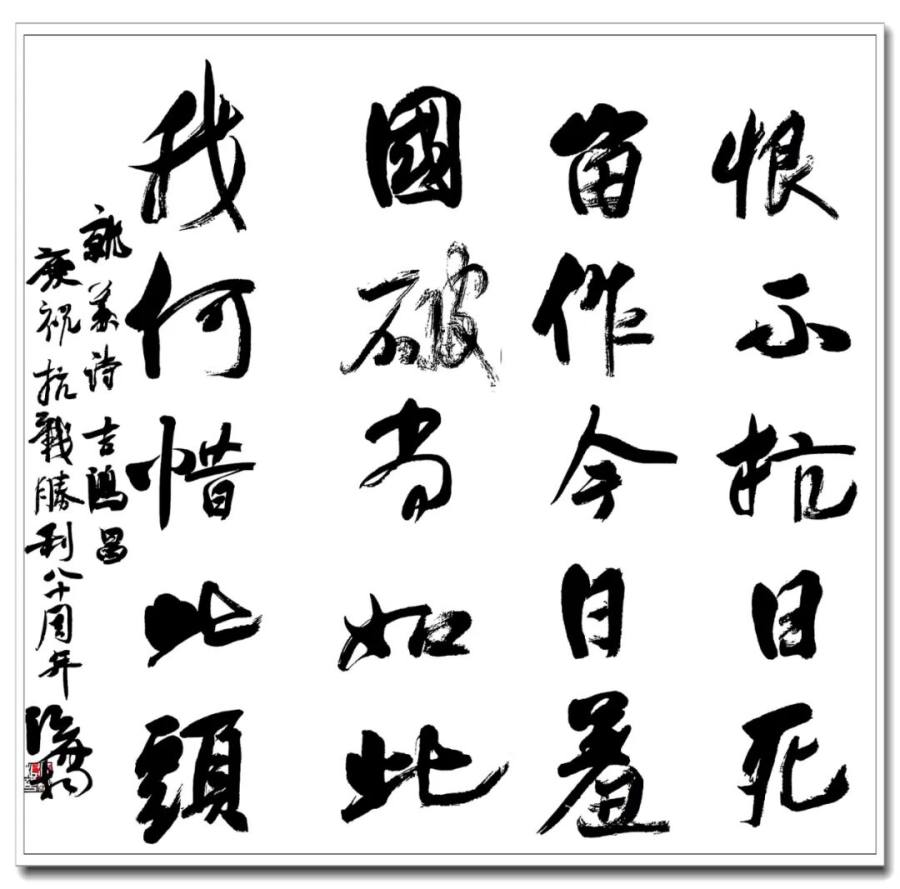 恨不抗日死
留作今日羞
國破尚如此
我何惜此頭
就義詩 吉鴻昌
慶祝抗戰勝利八十周年